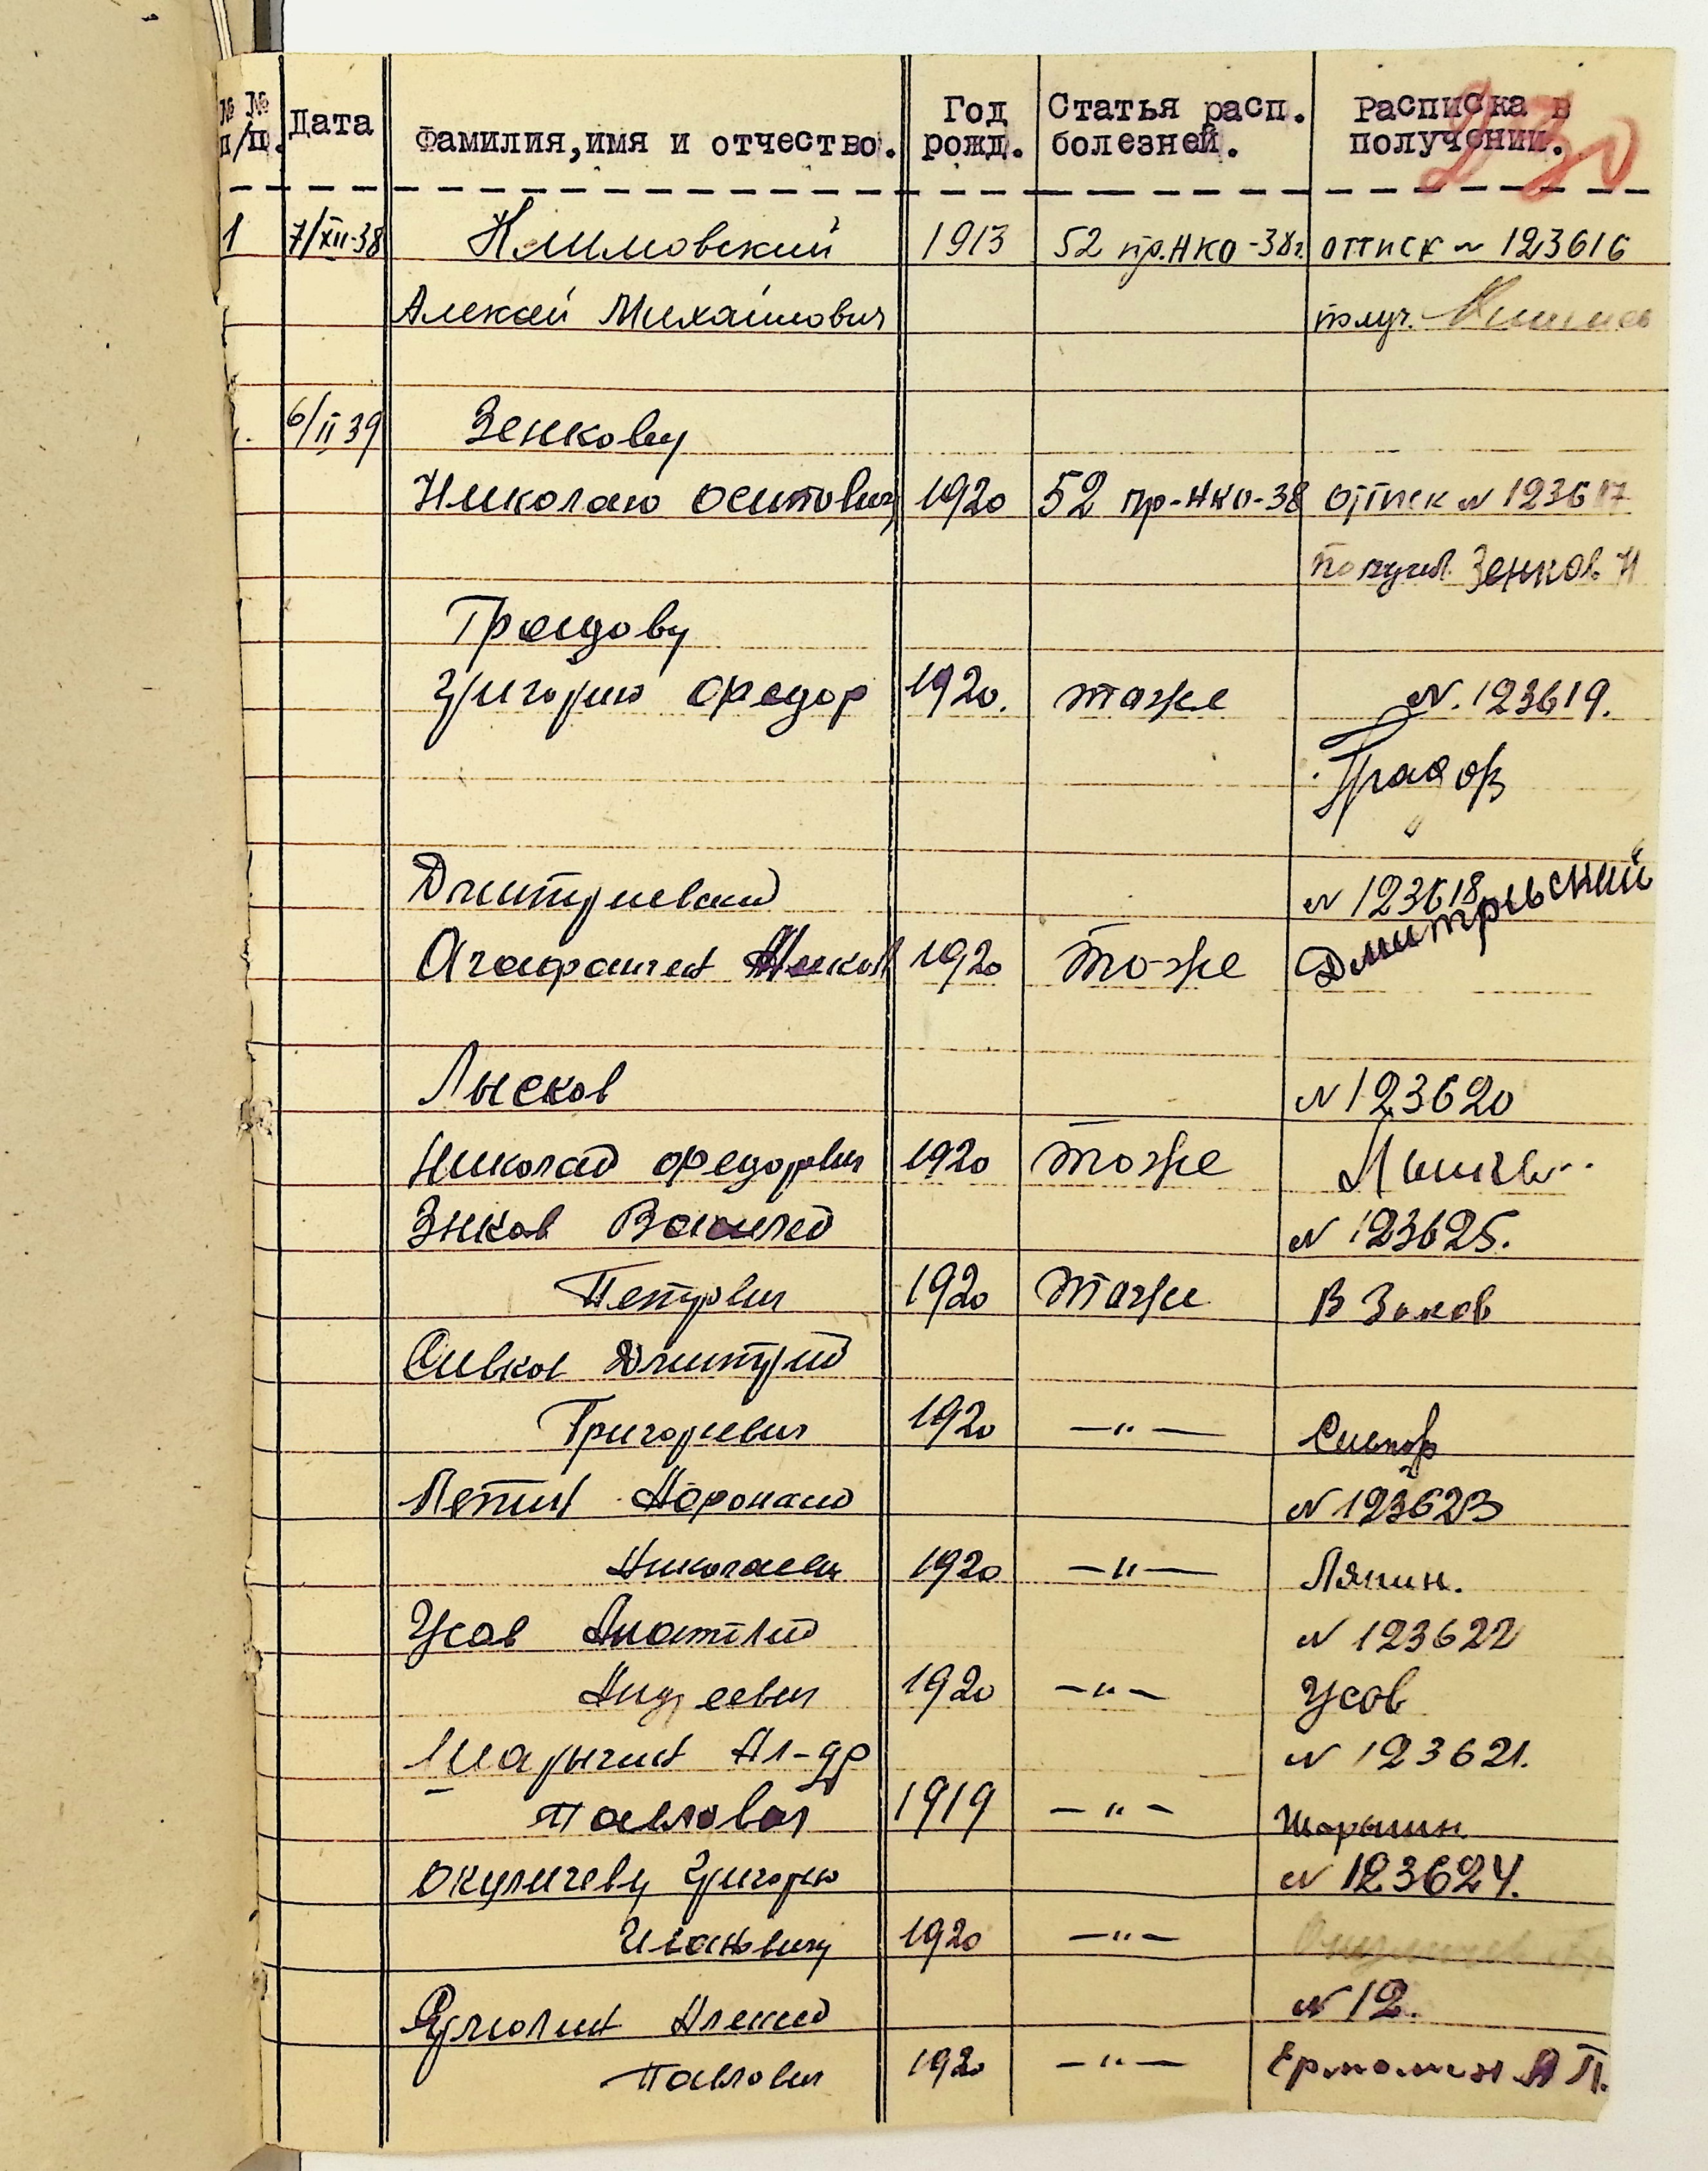 № № п/п. Дата Фамилия, имя и отчество. Год рожд. Статья расп. болезней. Расписка в получении.
230
1 7/XII-38 Климовский 1913 52 пр.НКО-38г. отпуск № 123616
Алексей Михайлович получ.
6/II 39 Зенкову
Николаю Осиповичу 1920 52 пр-НКО-38 отпуск № 123617
Получил Зенков Н
Градову
Григорию Федор 1920. тоже № 123619.
Градов
Дмитриевский № 123618
Агафангел Никол 1920 тоже Дмитрьский
Лысков № 123620
Николай Федорович 1920 тоже
Зыков Василий № 123625.
Петрович 1920 тоже В Зыков
Сивков Дмитрий
Григорьевич 1920 —"— Сивков
Афонасий № 123623
Николаевич 1920 —"— Ляпин.
Усов Анатолий № 123622
Андреевич 1920 —"— Усов
Шарыгин Ал-др № 123621.
Павлович 1919 —"— Шарыгин
Окуличеву Григорию № 123624.
Ивановичу 1920 —"—
Алексей № 12.
Павлович 1920 —"— Ермолин А П.